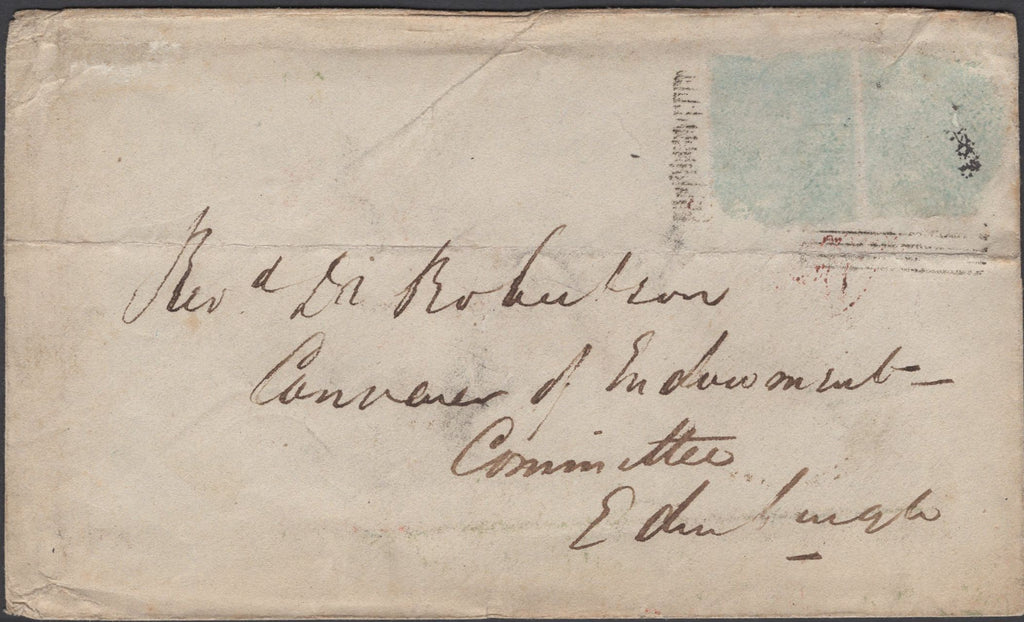 Revd Dr Robertson
Convener of Endowment
Committee
Edinburgh